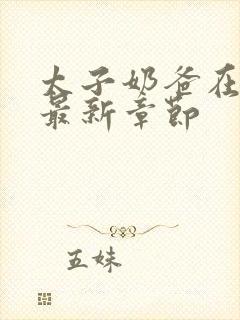 太子奶爸在
最新章节
五妹